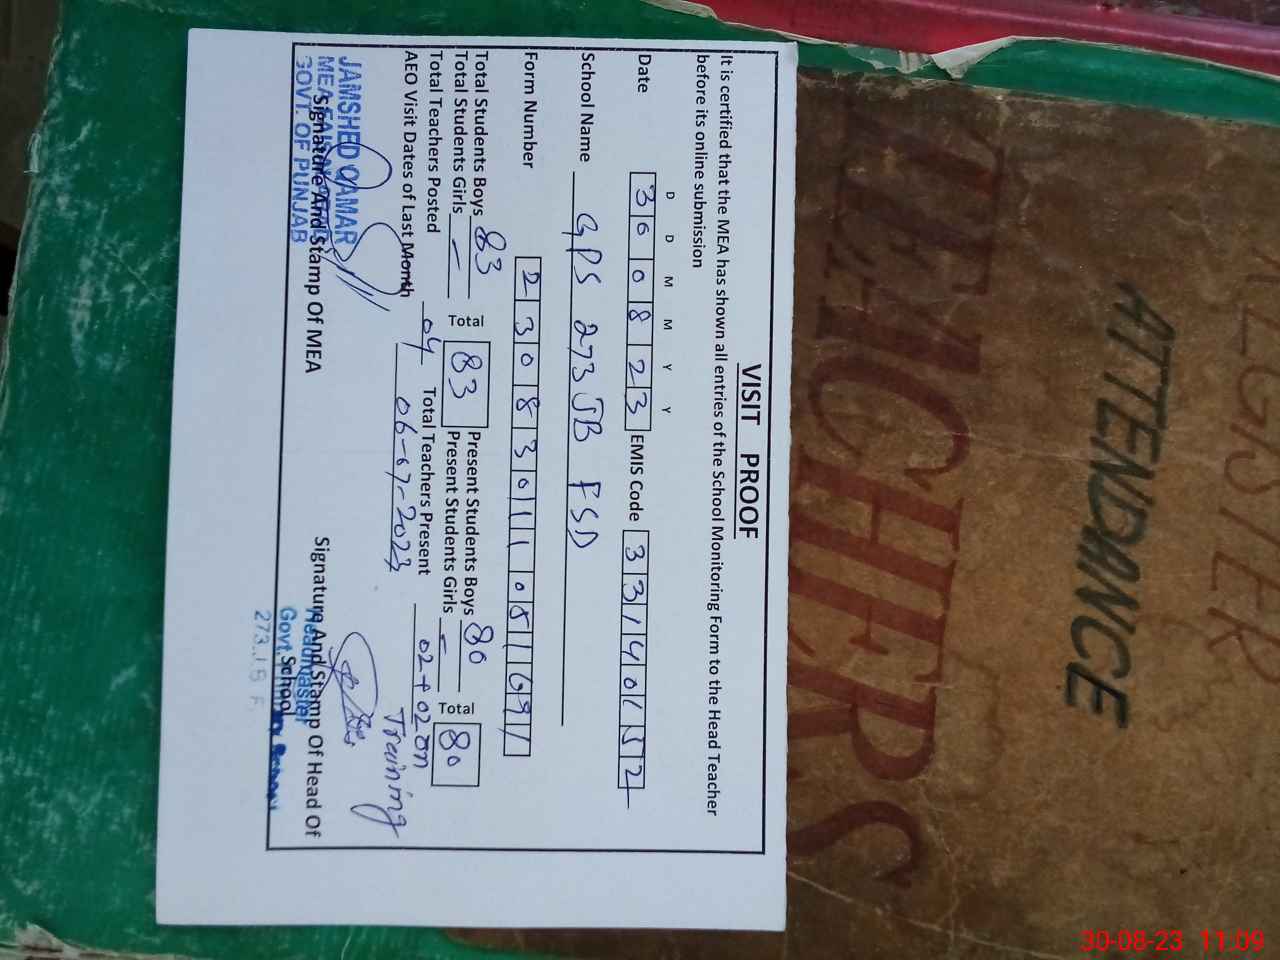 VISIT PROOF
It is certified that the MEA has shown all entries of the School Monitoring Form to the Head Teacher
before its online submission
D D M M Y Y
Date 300823 EMIS Code 33140152
School Name GPS 273 JB FSD
Form Number 23083011051691
Total Students Boys 83 Total 83 Present Students Boys 80 Total 80
Total Students Girls - Present Students Girls -
Total Teachers Posted 04 Total Teachers Present 02+02 on Training
AEO Visit Dates of Last Month 06-07-2023
JAMSHED QAMAR
MEA
GOVT. OF PUNJAB
Signature And Stamp Of MEA
Signature And Stamp Of Head Of
School
Headmaster
Govt.
273
REGISTER
ATTENDANCE
TEACHERS
30-08-23 11:09